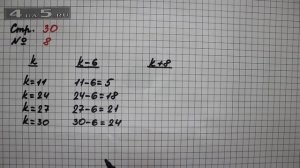 4 на 5.ru
Стр. 30
№ 8
k k-6 k+8
k=11 11-6=5
k=24 24-6=18
k=27 27-6=21
k=30 30-6=24